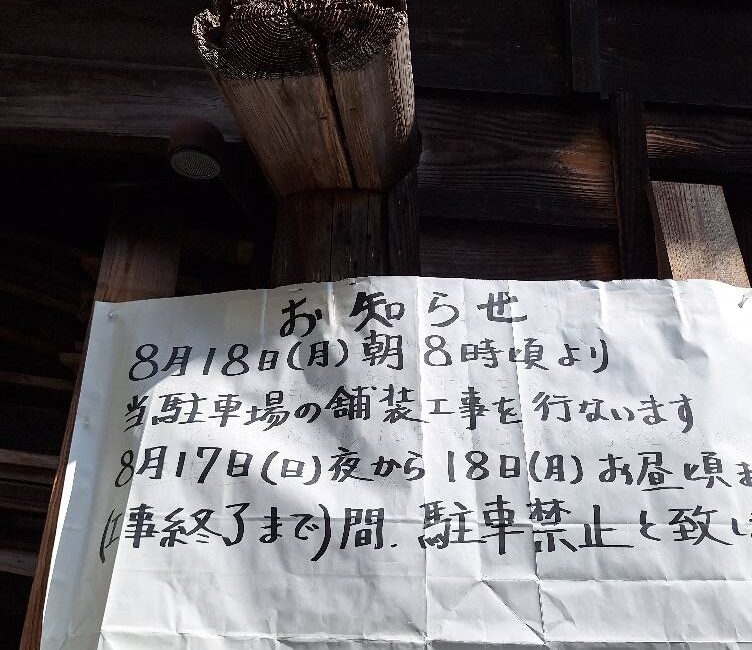 お知らせ
8月18日(月)朝8時頃より
当駐車場の舗装工事を行ないます
8月17日(日)夜から18日(月)お昼頃ま
(工事終了まで)間.駐車禁止と致し